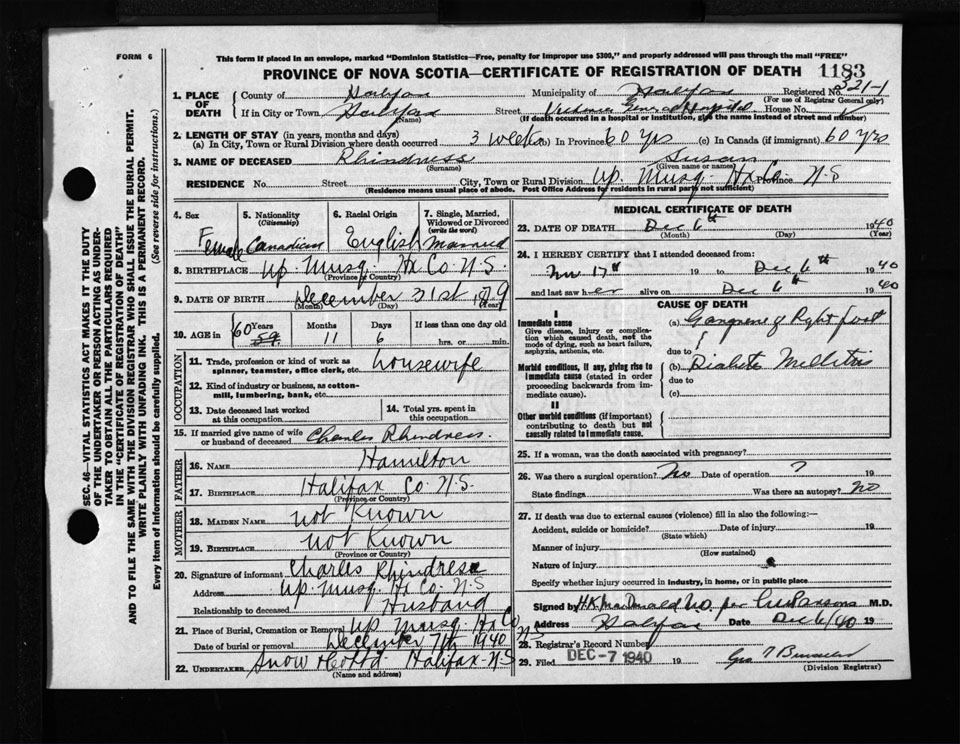 FORM 6
This form if placed in an envelope, marked "Dominion Statistics—Free, penalty for improper use $300," and properly addressed will pass through the mail "FREE"
PROVINCE OF NOVA SCOTIA—CERTIFICATE OF REGISTRATION OF DEATH 1183
1. PLACE OF DEATH County of Halifax Municipality of Halifax Registered No. 321-1
(For use of Registrar General only)
If in City or Town Halifax (Name) Street Victoria General Hospital House No.
(If death occurred in a hospital or institution, give the name instead of street and number)
2. LENGTH OF STAY (in years, months and days)
(a) In City, Town or Rural Division where death occurred 3 weeks (b) In Province 60 yrs (c) In Canada (if immigrant) 60 yrs
3. NAME OF DECEASED Rhindress Susan
(Surname) (Given name or names)
RESIDENCE No. Street City, Town or Rural Division Up. Musq. Hx Co. Province N-S
(Residence means usual place of abode. Post Office Address for residents in rural parts not sufficient)
4. Sex Female
5. Nationality (Citizenship) Canadian
6. Racial Origin English
7. Single, Married, Widowed or Divorced (write the word) Married
8. BIRTHPLACE Up Musq. Hx Co. N.S.
(Province or Country)
9. DATE OF BIRTH December 31st 1879
(Month) (Day) (Year)
10. AGE in 60 59 Years Months 11 Days 6 If less than one day old hrs. or min.
OCCUPATION
11. Trade, profession or kind of work as spinner, teamster, office clerk, etc. housewife
12. Kind of industry or business, as cotton-mill, lumbering, bank, etc.
13. Date deceased last worked at this occupation
14. Total yrs. spent in this occupation
15. If married give name of wife or husband of deceased Charles Rhindress.
FATHER
16. NAME Hamilton
17. BIRTHPLACE Halifax Co. N.S.
(Province or Country)
MOTHER
18. MAIDEN NAME not Known
19. BIRTHPLACE not Known
(Province or Country)
20. Signature of informant Charles Rhindress
Address Up. Musq. Hx Co. N-S
Relationship to deceased Husband
21. Place of Burial, Cremation or Removal Up Musq. Hx Co NS
Date of burial or removal December 7th 1940
22. UNDERTAKER Snow Halifax-N-S
(Name and address)
MEDICAL CERTIFICATE OF DEATH
23. DATE OF DEATH Dec 6th 1940
(Month) (Day) (Year)
24. I HEREBY CERTIFY that I attended deceased from:
Nov 17th 19 to Dec 6th 1940
and last saw her alive on Dec 6th 1940
CAUSE OF DEATH
I
Immediate cause
Give disease, injury or complication which caused death, not the mode of dying, such as heart failure, asphyxia, asthenia, etc.
(a) Gangrene of Right foot
due to
Morbid conditions, if any, giving rise to immediate cause (stated in order proceeding backwards from immediate cause).
(b) Diabetes Mellitus
due to
(c)
II
Other morbid conditions (if important) contributing to death but not causally related to immediate cause.
25. If a woman, was the death associated with pregnancy?
26. Was there a surgical operation? No Date of operation ? 19
State findings Was there an autopsy? No
27. If death was due to external causes (violence) fill in also the following:—
Accident, suicide or homicide? Date of injury 19
(State which)
Manner of injury
(How sustained)
Nature of injury
Specify whether injury occurred in industry, in home, or in public place
Signed by H.K. MacDonald M.D. per Parsons M.D.
Address Halifax Date Dec 6/40 19
28. Registrar's Record Number
29. Filed DEC-7 1940 19 Geo
(Division Registrar)
SEC. 46—VITAL STATISTICS ACT MAKES IT THE DUTY
OF THE UNDERTAKER OR PERSON ACTING AS UNDER-
TAKER TO OBTAIN ALL THE PARTICULARS REQUIRED
IN THE "CERTIFICATE OF REGISTRATION OF DEATH"
AND TO FILE THE SAME WITH THE DIVISION REGISTRAR WHO SHALL ISSUE THE BURIAL PERMIT.
WRITE PLAINLY WITH UNFADING INK. THIS IS A PERMANENT RECORD.
Every item of information should be carefully supplied. (See reverse side for instructions.)